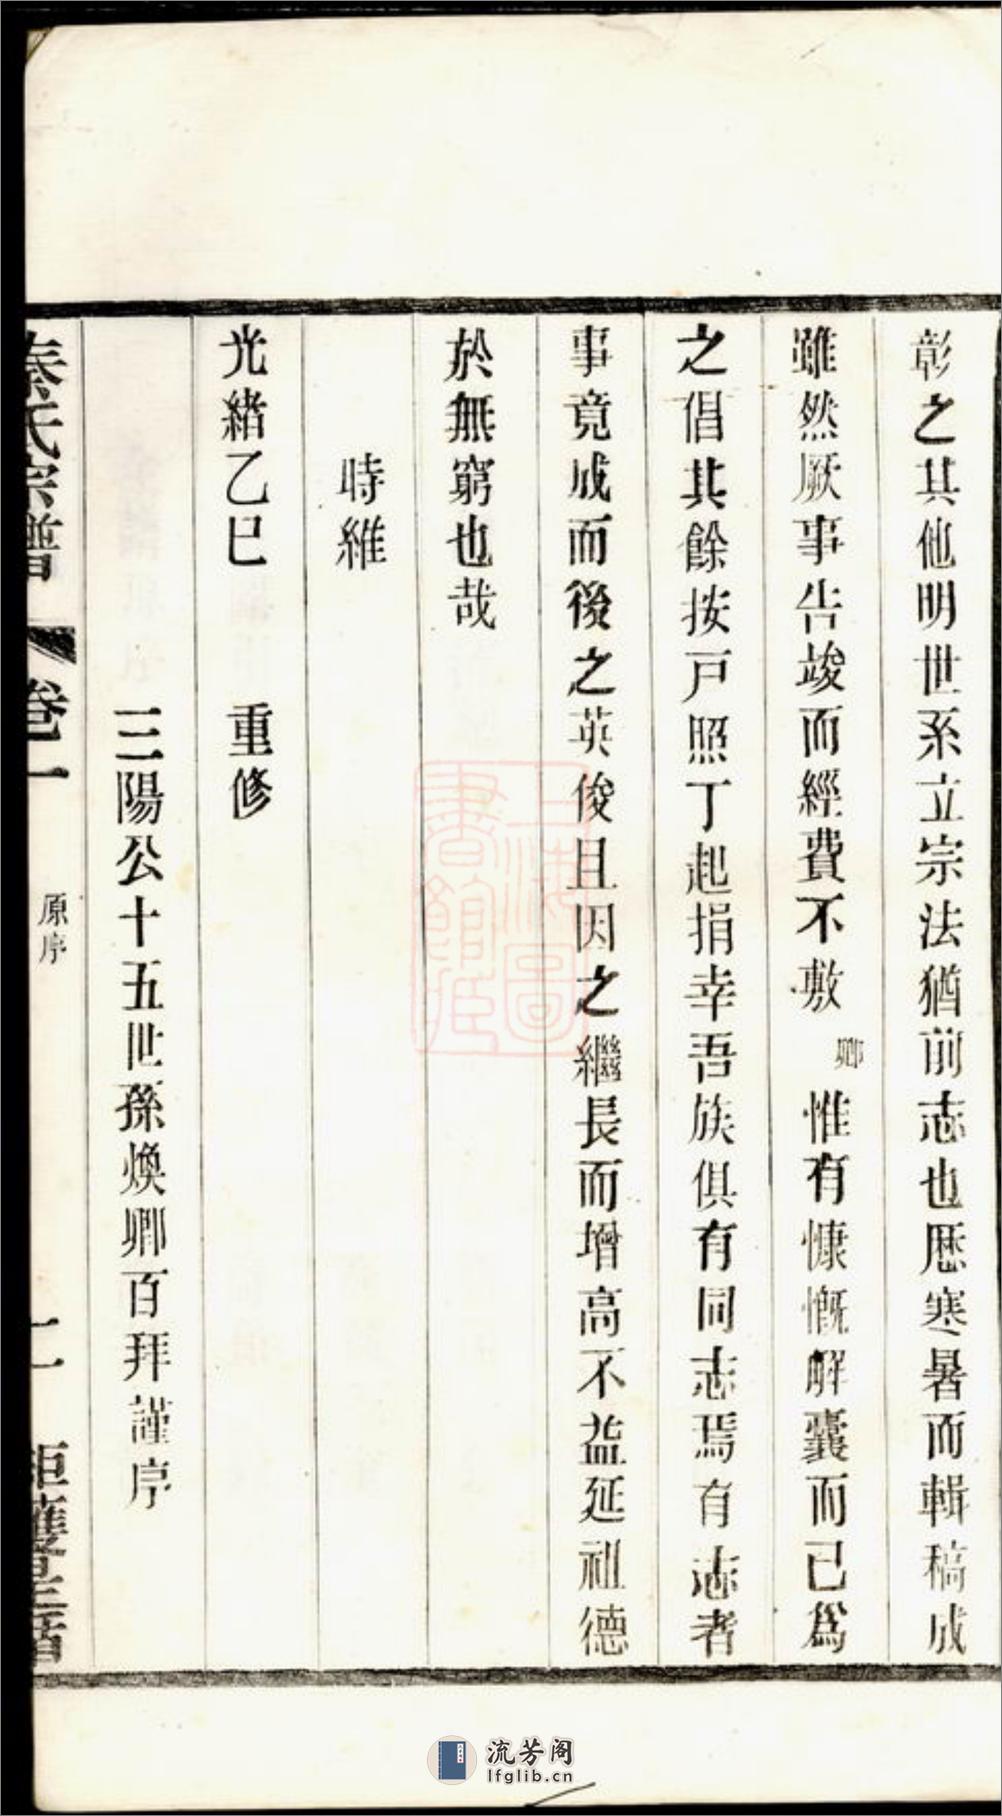 彰之其他明世系立宗法猶前志也歷寒暑而輯稿成
雖然厥事告竣而經費不敷卿惟有慷慨解囊而已爲
之倡其餘按戸照丁起捐幸吾族俱有同志焉有志者
事竟成而後之英俊且因之繼長而增高不益延祖德
於無窮也哉
時維
光緒乙巳 重修
三陽公十五世孫煥卿百拜謹序
秦氏宗譜 卷一 原序 二
上海圖書館藏
流芳阁
lfglib.cn